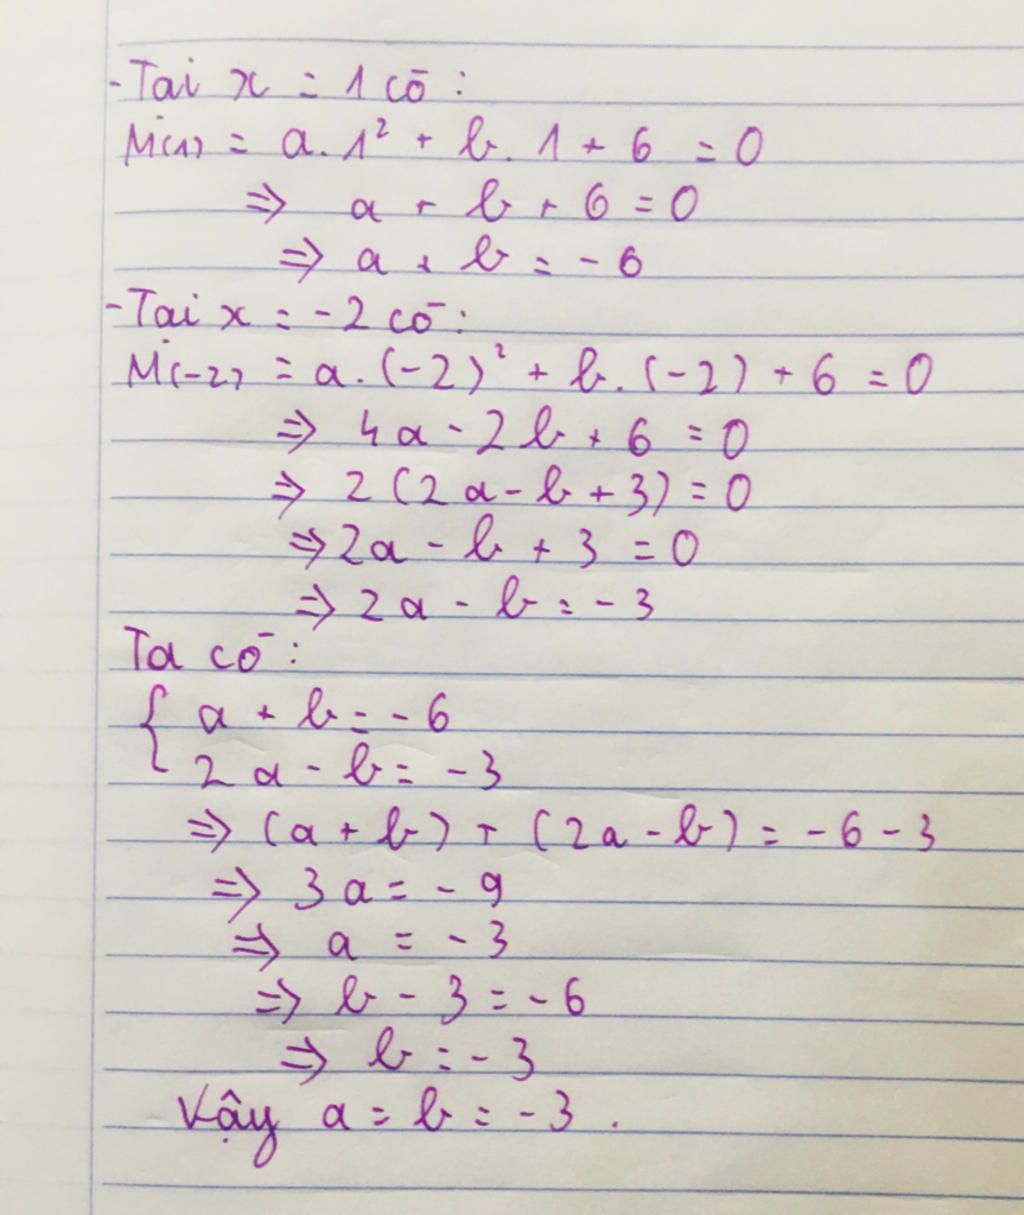 -Tại x = 1 có :
M(1) = a.1² + b. 1 + 6 = 0
⇒ a + b + 6 = 0
⇒ a + b = -6
-Tại x = -2 có :
M(-2) = a.(-2)² + b.(-2) + 6 = 0
⇒ 4a - 2b + 6 = 0
⇒ 2(2a - b + 3) = 0
⇒ 2a - b + 3 = 0
⇒ 2a - b = -3
Ta có :
{ a + b = -6
2a - b = -3
⇒ (a + b) + (2a - b) = -6 - 3
⇒ 3a = -9
⇒ a = -3
⇒ b - 3 = -6
⇒ b = -3
Vậy a = b = -3 .